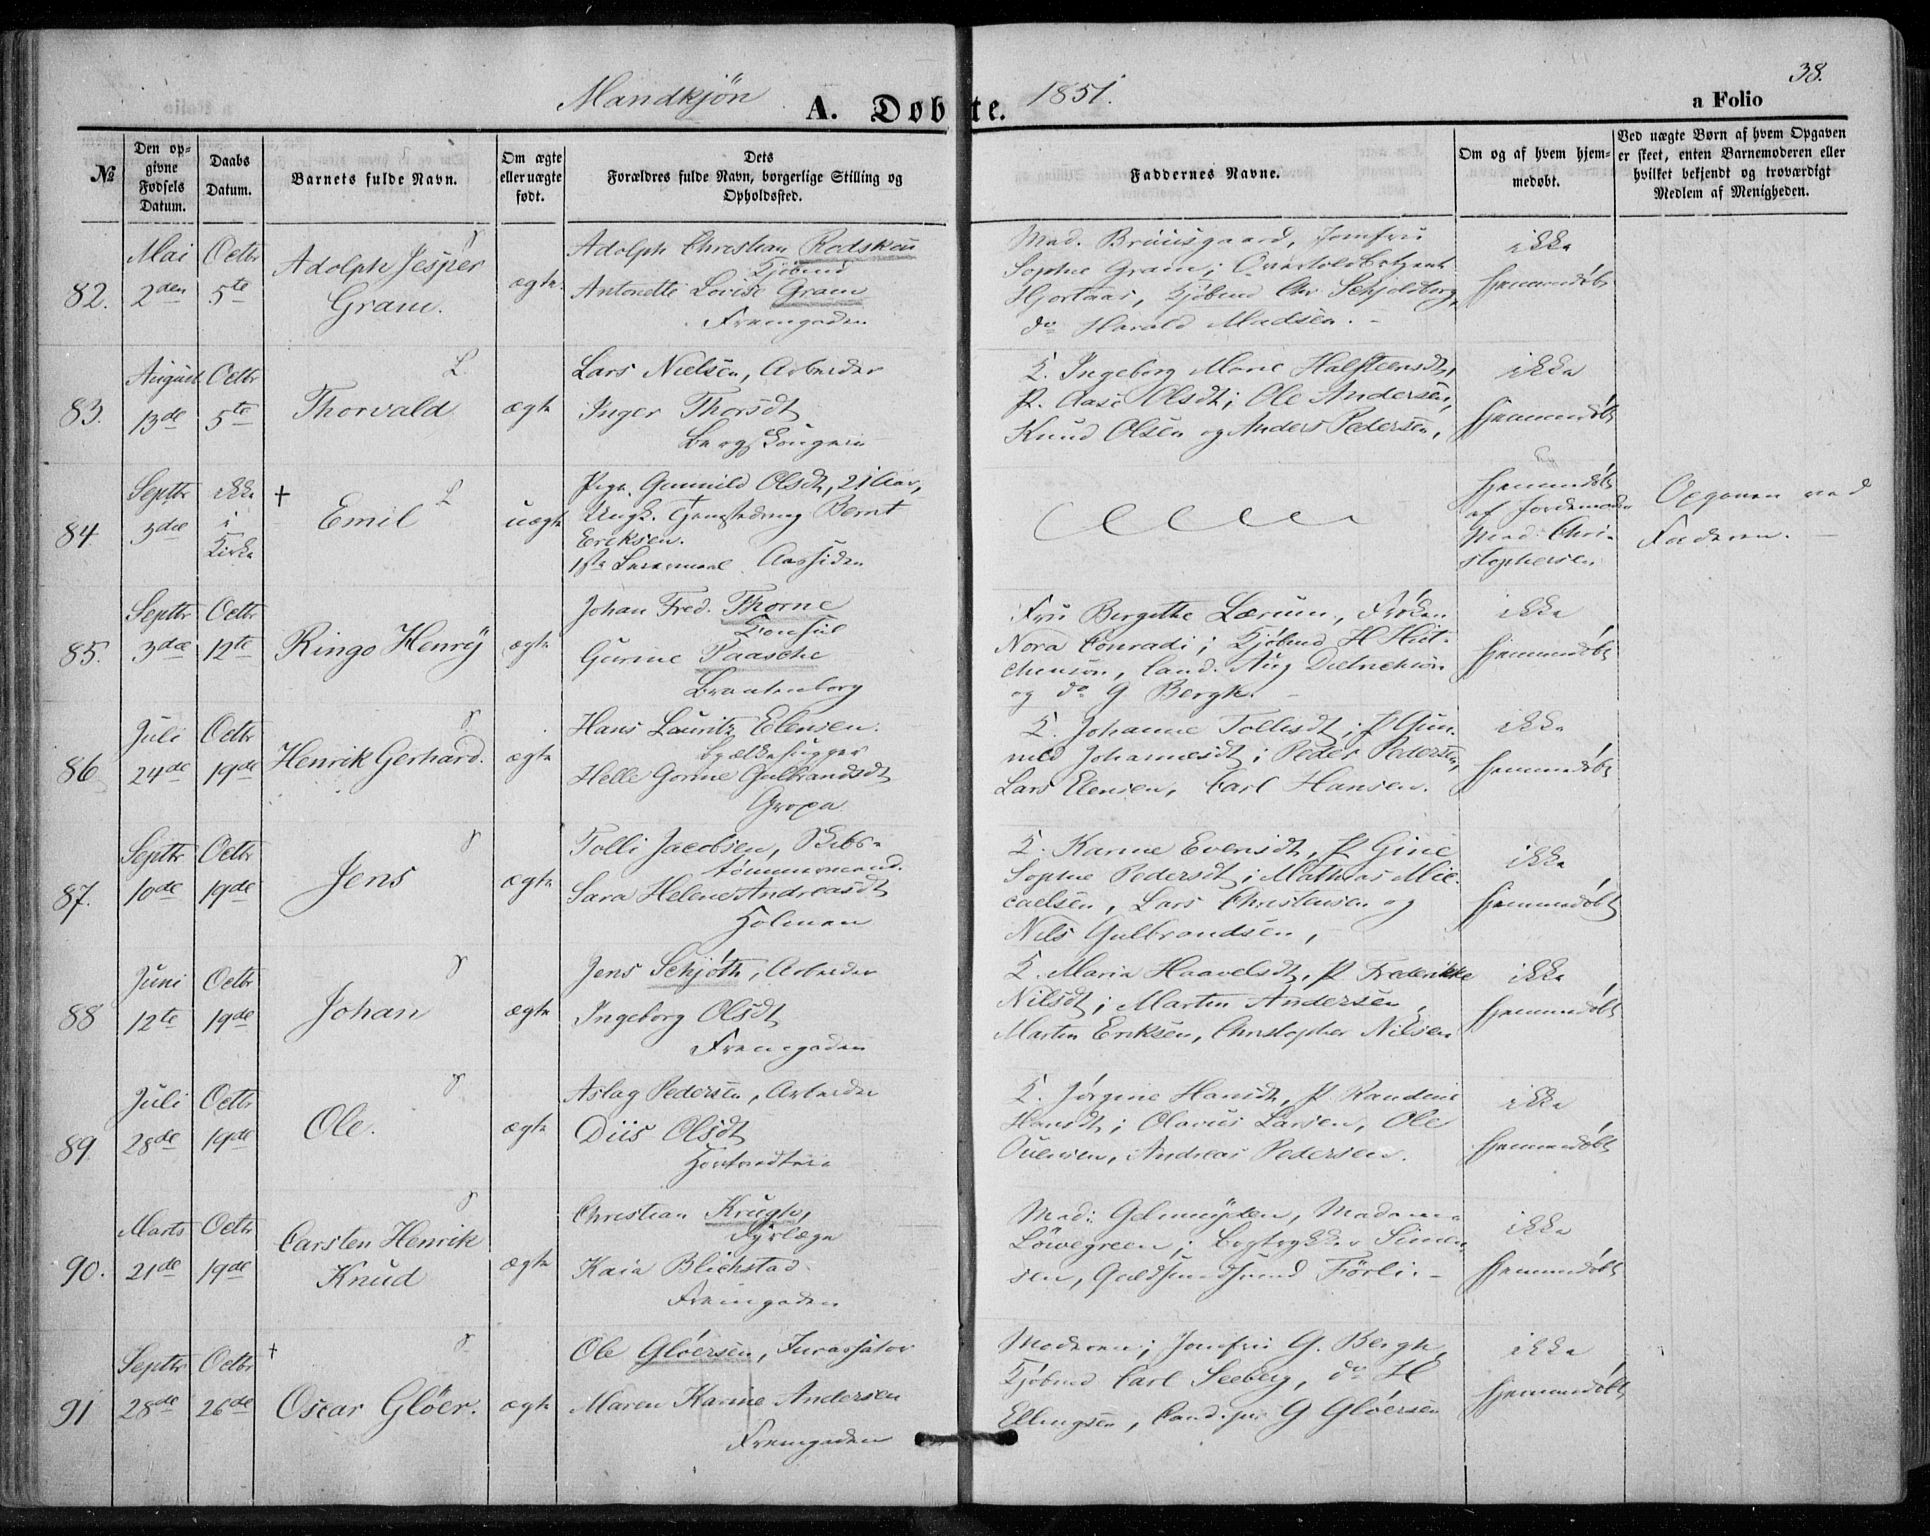 Mandkjön A. Döbte. 1851. a Folio 38.
№
Den opgivne Fødsels Datum.
Daabs Datum.
Barnets fulde Navn.
Om ægte eller uægte født.
Dets Forældres fulde Navn, borgerlige Stilling og Opholdssted.
Faddernes Navne.
Om og af hvem hjemmedøbt.
Ved uægte Børn af hvem Opgaven er skeet, enten Barnemoderen eller hvilket bekjendt og troværdigt Medlem af Menigheden.
82.
Mai
2den
Octbr
5te
Adolph Jesper
Gram.
ægte.
Adolph Christian Rodskou
Kjøbmd
Antonette Lovise Gram
Fremgaden
Mad. Bruusgaard, Jomfru
Sophie Gram; Overtoldbetjent
Hjortaas, Kjøbmd Chr Schjelborg,
do Harald Madsen. -
ikke
hjemmedøbt
83.
August
13de
Octbr
5te
L.
Thorvald
ægte
Lars Nielsen, Arbeider
Inger Thorsdt
K. Ingeborg Marie Halsteensdt,
P. Aase Olsdt; Ole Andersen,
Knud Olsen og Anders Pedersen,
ikke
hjemmedøbt
84.
Septbr
3die
ikke
i
Kirke
† Emil L
uægte
Pige Gunnild Olsdt, 21 Aar,
Ungk. Bernt
Eriksen.
1ste Leiermaal Aassiden
hjemmedøbt
af Jordemoder
Mad. Chri-
stophersen
Opgaven ved
Faderen. -
85.
Septbr
3die
Octbr
12te
Ringo Henrÿ
ægte
Johan Fred. Thorne
Konsul
Gurine Paasche
Brantenborg
Fru Bergitte Lærum, Frøken
Nora Conradi; Kjøbmd H Hut-
chinson, Cand. Aug Dietrichson
og do G Bergh. -
ikke
hjemmedøbt
86
Juli
24de
Octbr
19de
Henrik Gerhard.
ægte
Hans Lauritz Elensen.
Bjælkehugger
Helle Gorine Gulbrandsdt
Gropa
K. Johanne Tollisdt; P Gun-
nild Johannesdt; Peder Pedersen,
Lars Elensen, Carl Hansen.
ikke
hjemmedøbt
87.
Septbr
10de
Octbr
19de
Jens
ægte
Tolli Jacobsen, Skibs-
tømmermand.
Sara Helene Andreasdt
Holmen
K. Karine Evensdt, P Gine
Sophie Pedersdt; Mathias Mic-
caelsen, Lars Christensen og
Nils Gulbrandsen,
ikke
hjemmedøbt
88
Juni
12te
Octbr
19de
Johan
ægte
Jens Schjøth, Arbeider
Ingeborg Olsdt
Fremgaden
K. Maria Haavelsdt, P Frederikke
Nilsdt; Martin Andersen,
Martin Eriksen, Christopher Nilsen
ikke
hjemmedøbt
89
Juli
28de
Octbr
19de
Ole.
ægte
Aslag Pedersen, Arbeider
Diis Olsdt
K. Jørgine Hansdt, P Randine
Hansdt; Olavus Larsen, Ole
Ouensen, Andreas Pedersen.
ikke
hjemmedøbt
90.
Marts
21de
Octbr
19de
Carsten Henrik
Knud
ægte
Christian Krugh,
Dyrlæge
Kaia Blichstad
Fremgaden
Mad: Gelmuyden, Madame
Löwegreen; Bogtrykker Simen-
sen, Guldsmedsvend Förli. -
ikke
hjemmedøbt
91
Septbr
28de
Octbr
26de
†
Oscar Glöer.
ægte
Ole Gløersen,
Maren Karine Andersen
Fremgaden
Moderen; Jomfru G. Bergh,
Kjøbmd Carl Seeberg, do H
Ellingsen, Cand. jur G Gløersen
ikke
hjemmedøbt